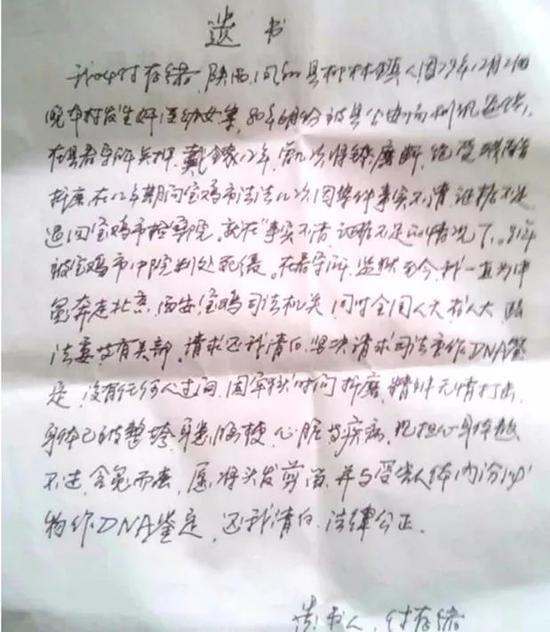 遗书
我叫付存储,陕西凤翔县柳林镇人因79年12月21日
晚本村发生奸淫幼女案,80年6月份被县公安局刑讯逼供,
在县看守所关押,戴铐12年,常九次将铐磨断,饱受残酷
折磨,在12年期间宝鸡市法院几次因案件事实不清,证据不足
退回宝鸡市检察院。就在"事实不清,证据不足"的情况下。91年
被宝鸡市中院判处死缓。在看守所,监狱至今,我一直为申
冤奔走北京,西安,宝鸡司法机关同时全国人大,省人大,政
法委等有关部,请求还我清白,坚决请求司法重作DNA鉴
定,没有任何人过问,因牢狱时间折磨,精神无情打击,
身体已被整垮,身患脑梗,心脏等疾病,现担心身体熬
不过,含冤而去,愿将头发剪留,并与受害人体内分泌
物作DNA鉴定,还我清白,法律公正.
遗书人,付存储